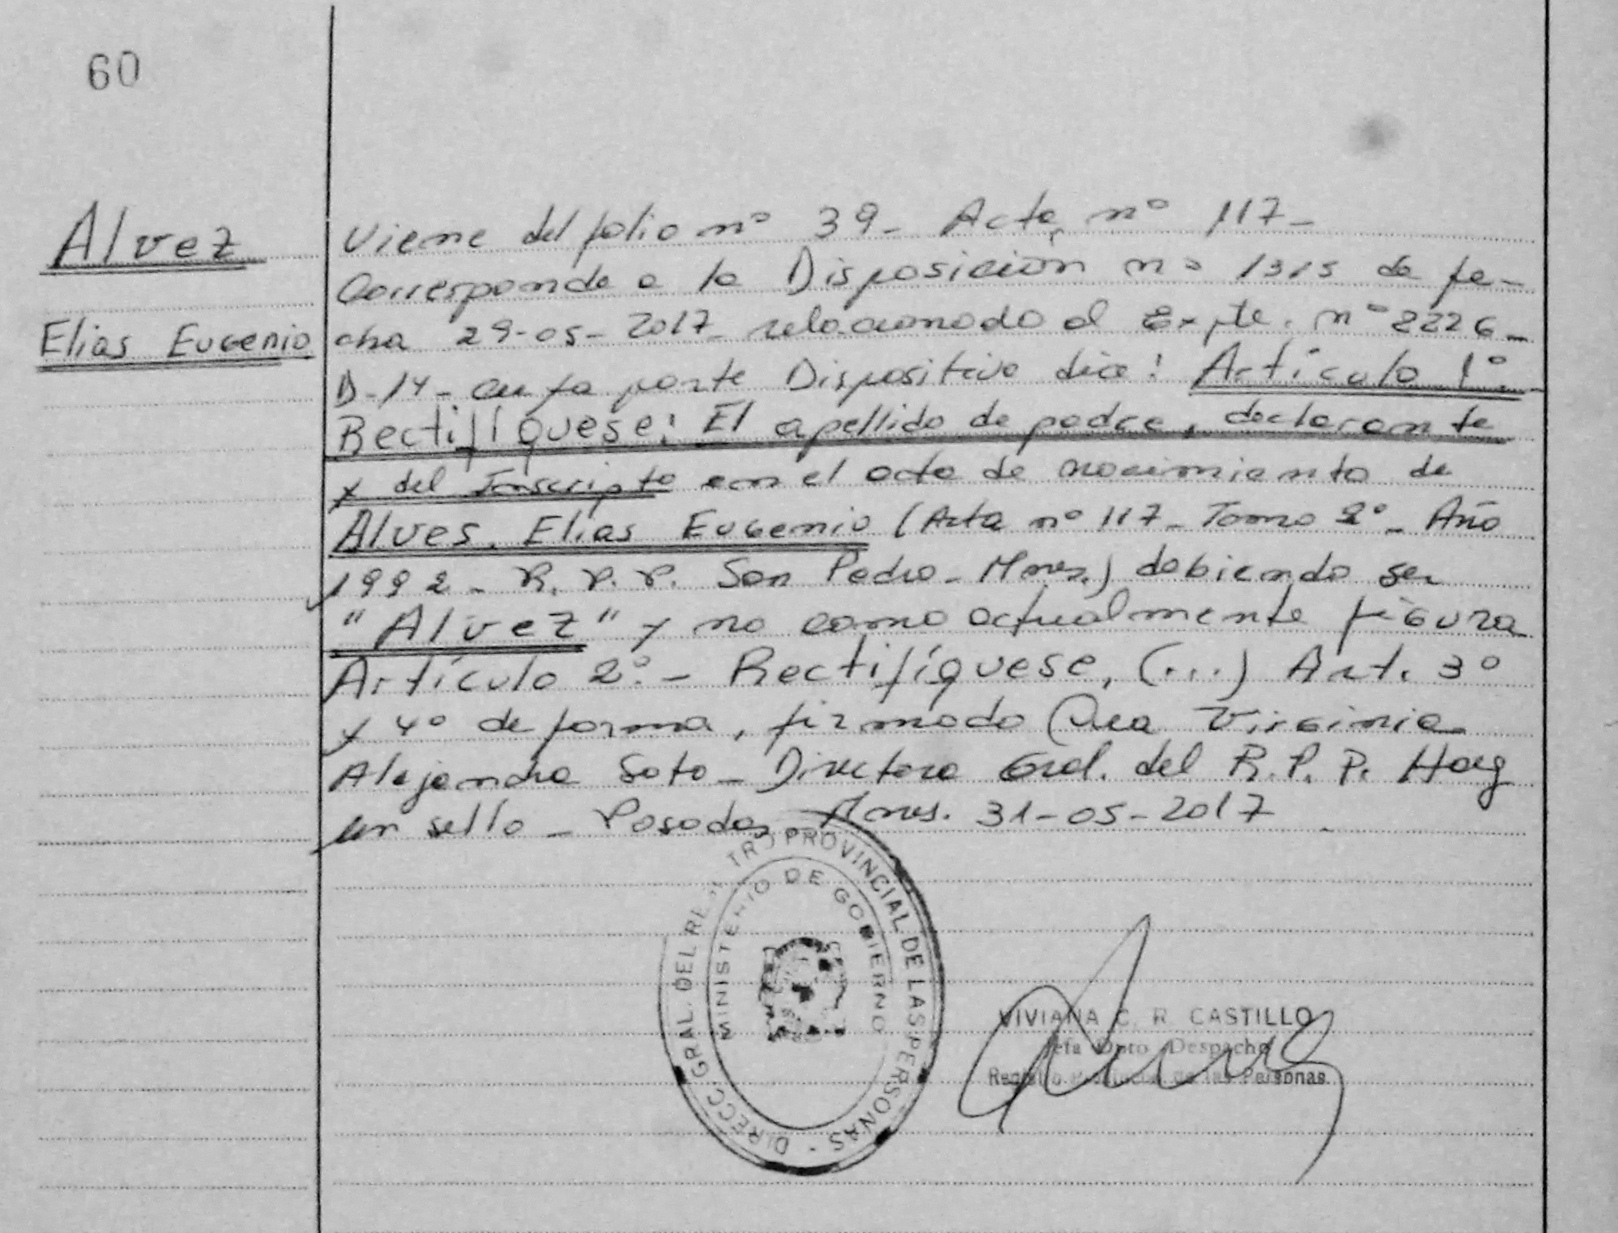 60
Alvez
Elias Eugenio
Viene del folio nº 39- Acta nº 117-
Corresponde a la Disposición nº 1315 de fe-
cha 29-05-2017- relacionado al Expte. nº 2226-
D-14- cuya parte Dispositiva dice: Artículo 1º
Rectifíquese: El apellido de padre, declarante
y del Inscripto en el acta de nacimiento de
Alves, Elias Eugenio (Acta nº 117- Tomo 2º- Año
1992- R.P.P. San Pedro- Mnes.) debiendo ser
"Alvez" y no como actualmente figura
Artículo 2º.- Rectifíquese, (...) Art. 3º
y 4º de forma, firmado Virginia
Alejandra Soto- Directora Gral. del R.P.P. Hay
un sello- Posadas, Mnes. 31-05-2017
DIRECC GRAL. DEL REGISTRO PROVINCIAL DE LAS PERSONAS -
MINISTERIO DE GOBIERNO
VIVIANA C. R. CASTILLO
Jefa Dpto Despacho
Registro Provincial de las Personas